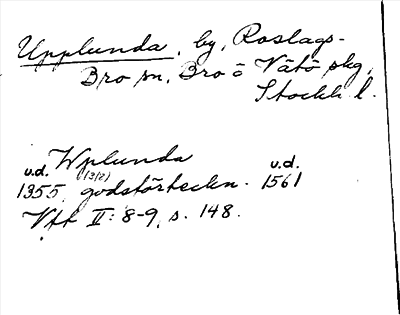 Upplunda, by, Roslags-
Bro sn, Bro ö Vätö skg,
Stockh l.
Wplunda
u.d. (1312) u.d.
1355, godsförteckn. 1561
Vtk II: 8-9, s. 148.